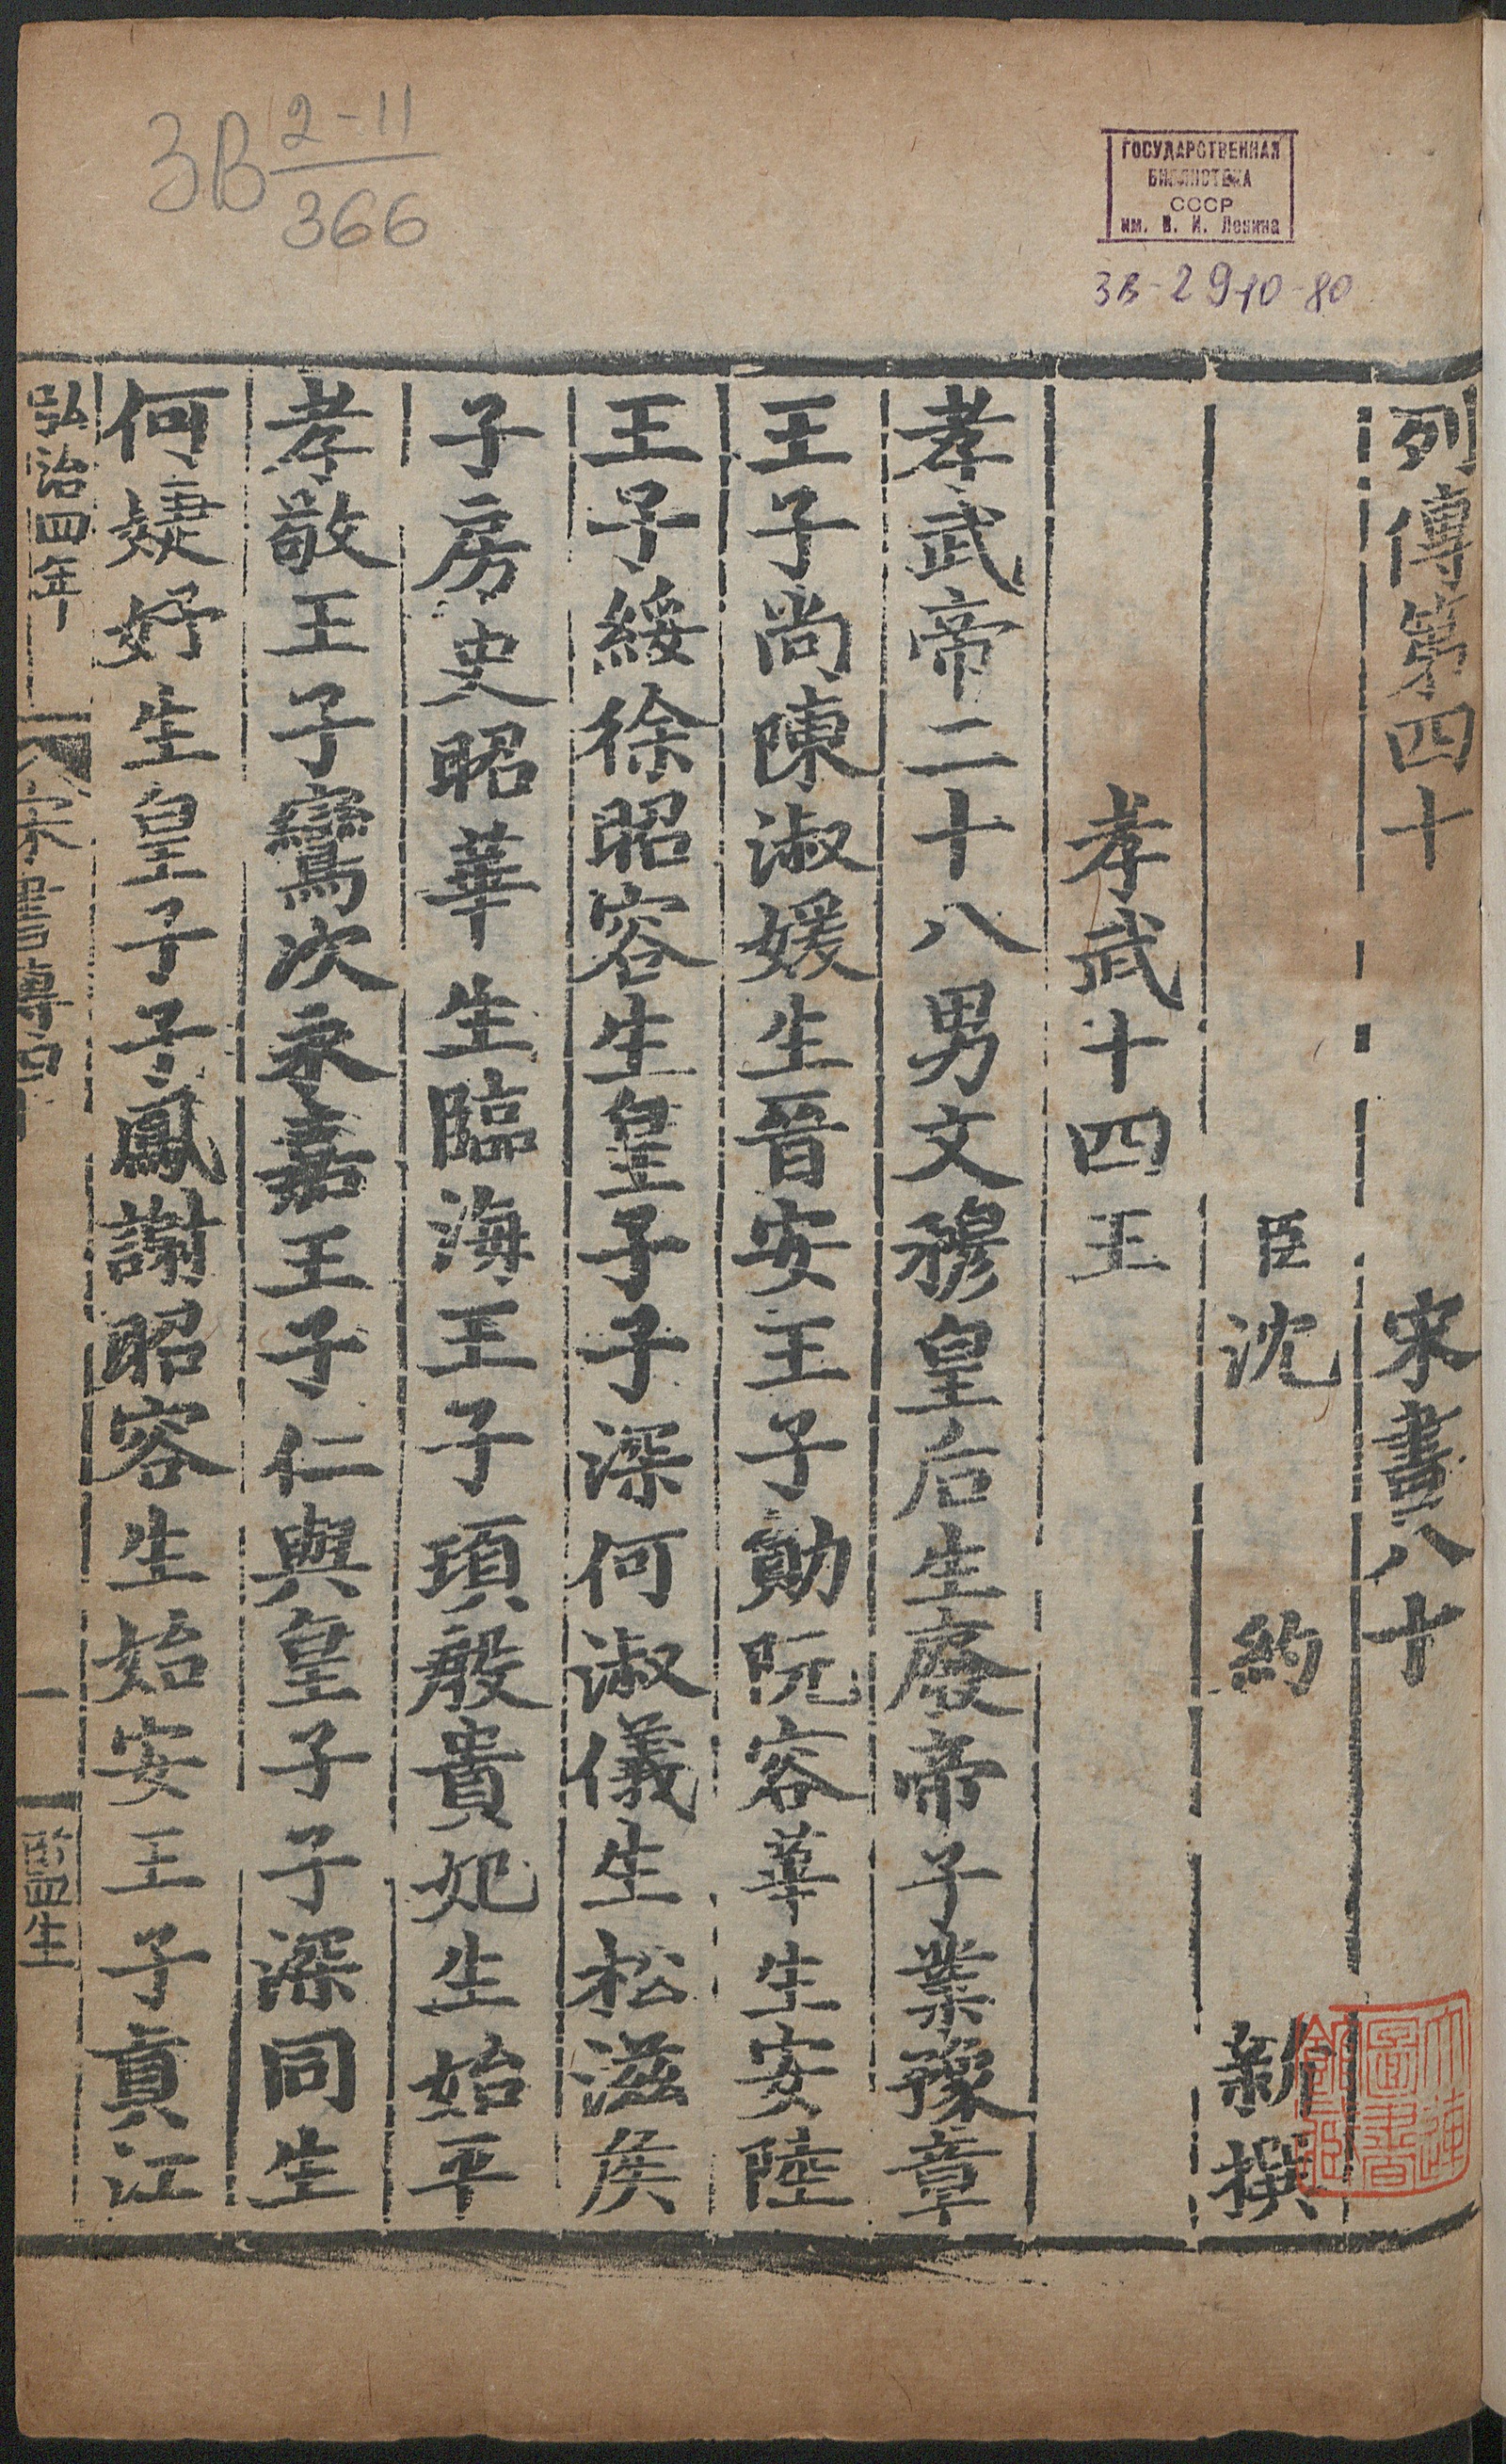 ЗВ 2-11
366
ГОСУДАРСТВЕННАЯ
БИБЛИОТЕКА
СССР
им. В. И. Ленина
ЗВ-2 910-80
列傳第四十 宋書八十
臣沈 約 新撰
孝武十四王
孝武帝二十八男文穆皇后生廢帝子業豫章
王子尚陳淑媛生晉安王子勛阮容華生安陸
王子綏徐昭容生皇子子深何淑儀生松滋侯
子房史昭華生臨海王子頊殷貴妃生始平
孝敬王子鸞次永嘉王子仁與皇子子深同生
何婕妤生皇子子鳳謝昭容生始安王子真江
弘治四年
宋書傳四
一
監生
大連
圖書
館藏